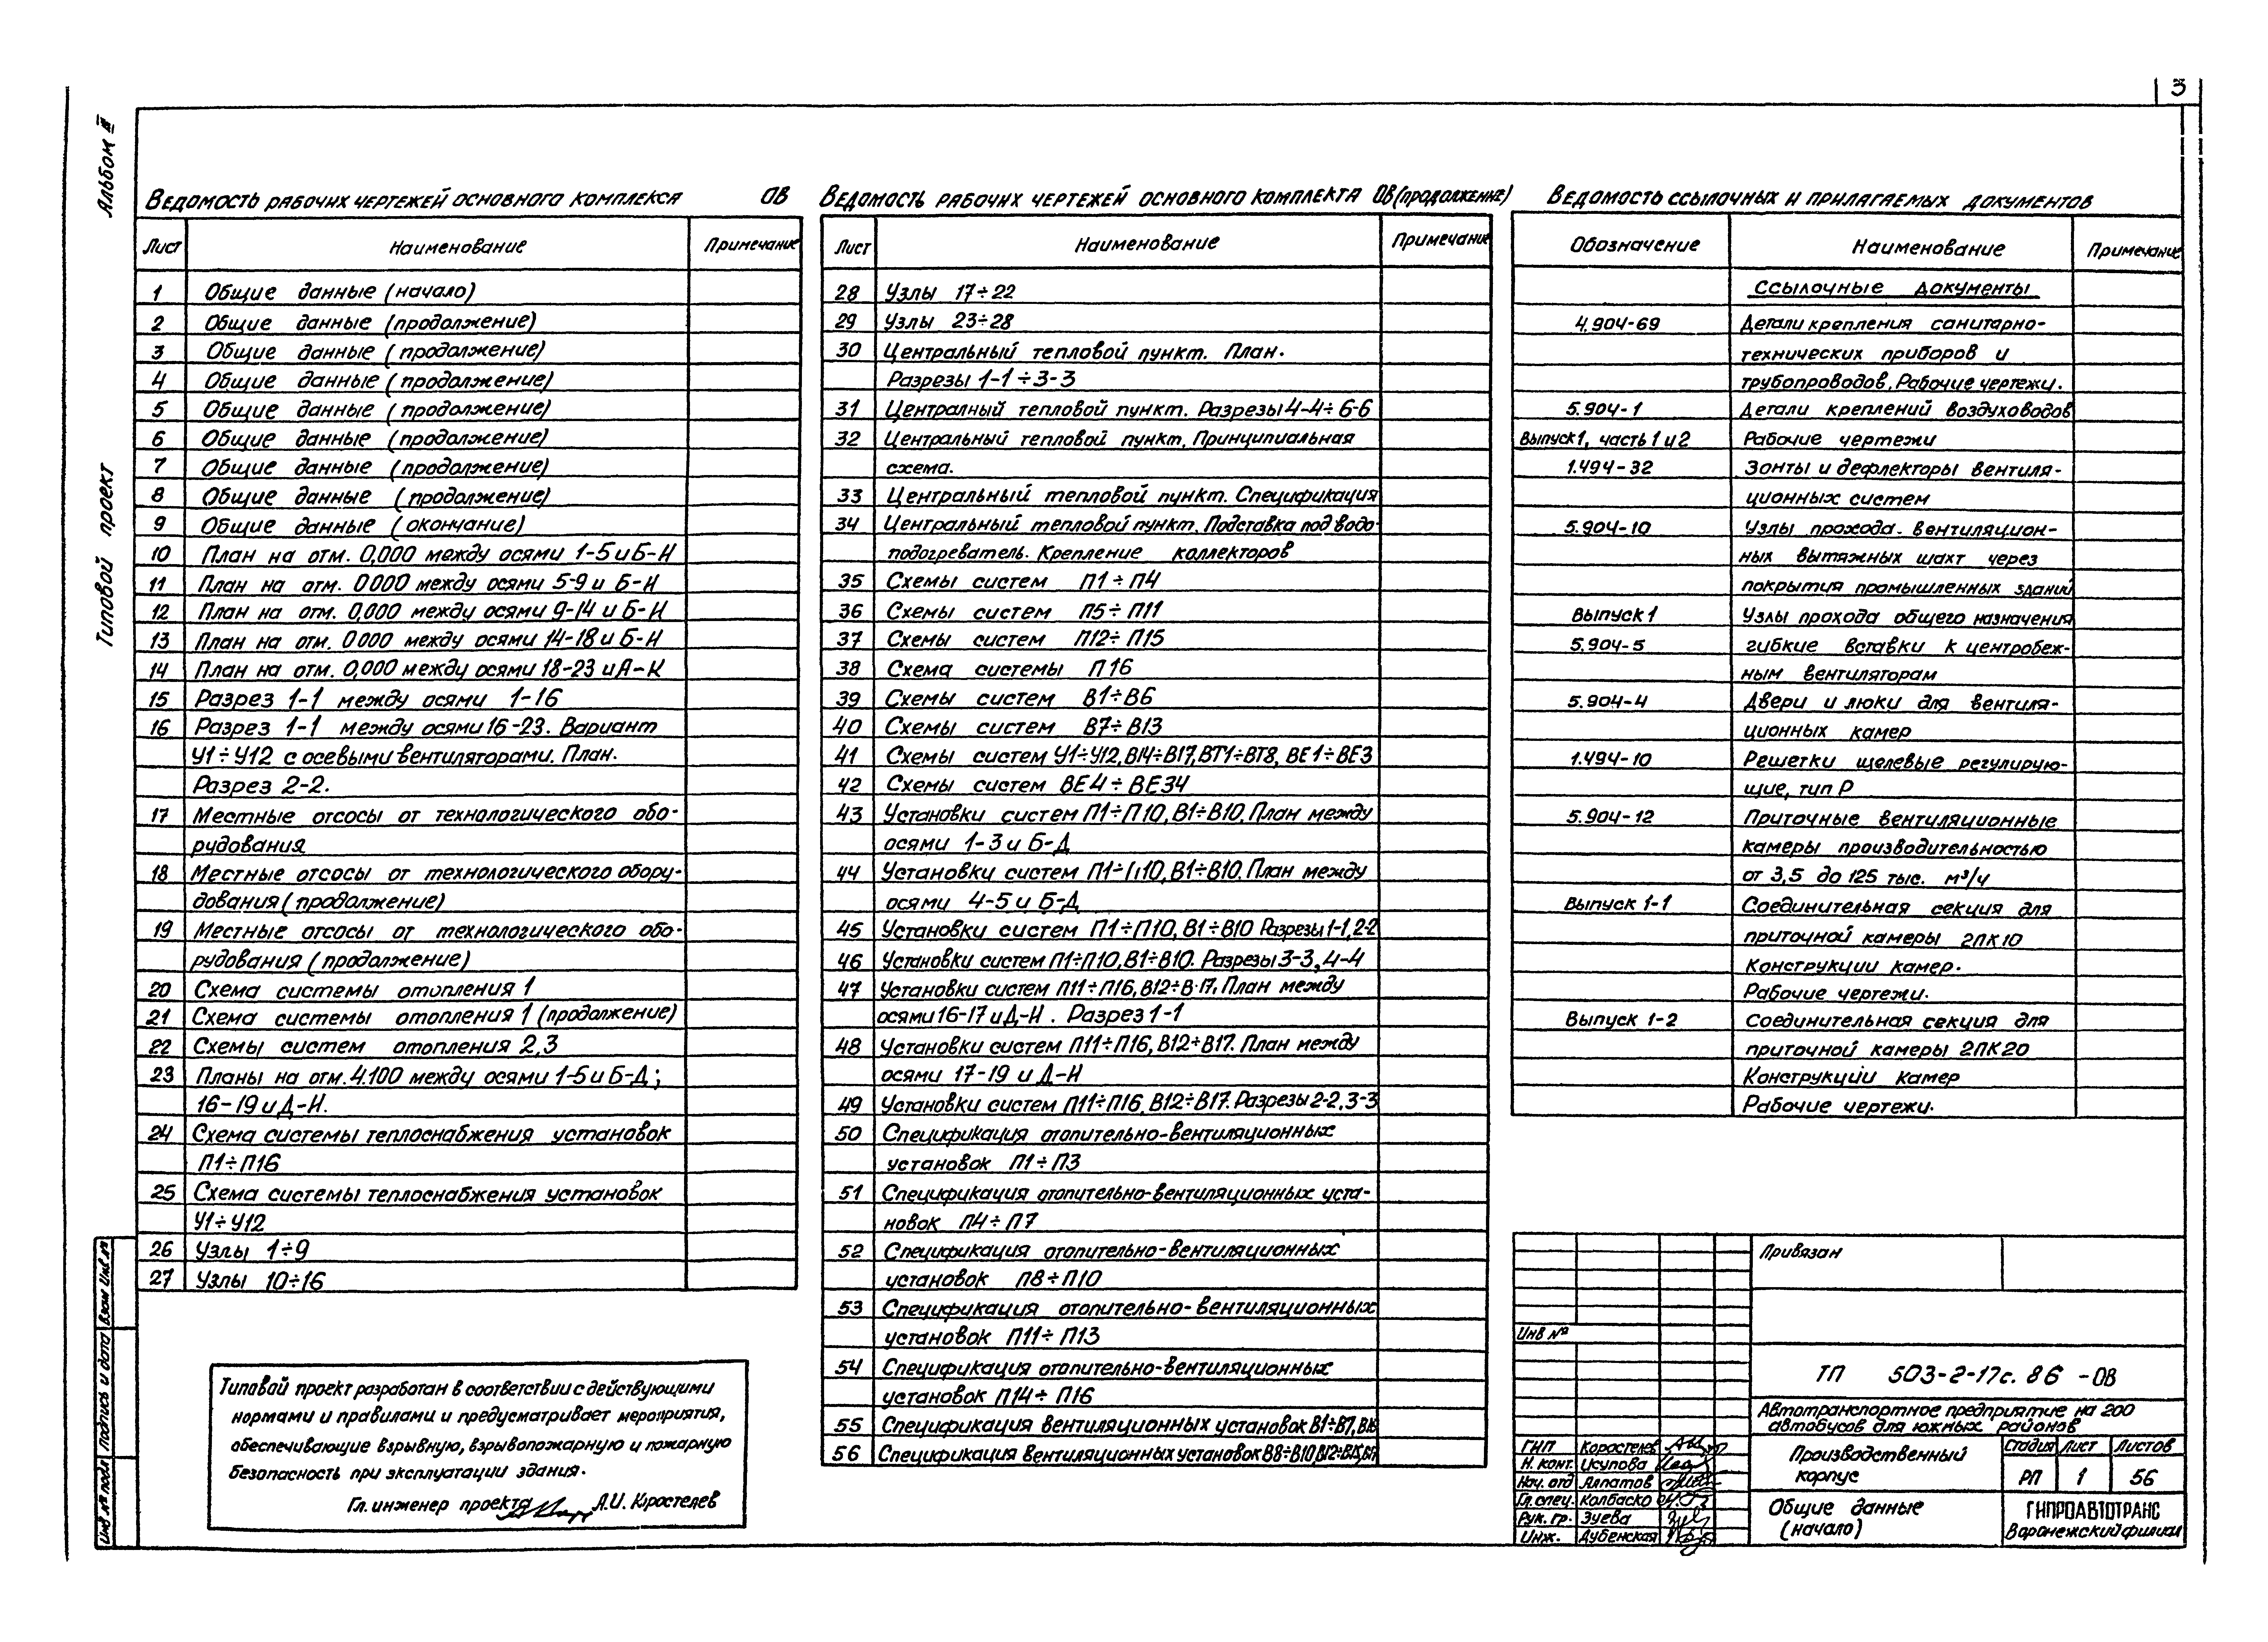 3
Альбом III
Типовой проект
Ведомость рабочих чертежей основного комплекся ОВ
Лист Наименование Примечание
1 Общие данные (начало)
2 Общие данные (продолжение)
3 Общие данные (продолжение)
4 Общие данные (продолжение)
5 Общие данные (продолжение)
6 Общие данные (продолжение)
7 Общие данные (продолжение)
8 Общие данные (продолжение)
9 Общие данные (окончание)
10 План на отм. 0,000 между осями 1-5 и Б-И
11 План на отм. 0000 между осями 5-9 и Б-И
12 План на отм. 0,000 между осями 9-14 и Б-И
13 План на отм. 0000 между осями 14-18 и Б-И
14 План на отм. 0,000 между осями 18-23 и А-К
15 Разрез 1-1 между осями 1-16
16 Разрез 1-1 между осями 16-23. Вариант
У1÷У12 с осевыми вентиляторами. План.
Разрез 2-2.
17 Местные отсосы от технологического обо-
рудования
18 Местные отсосы от технологического обору-
дования (продолжение)
19 Местные отсосы от технологического обо-
рудования (продолжение)
20 Схема системы отопления 1
21 Схема системы отопления 1 (продолжение)
22 Схемы систем отопления 2,3
23 Планы на отм. 4.100 между осями 1-5 и Б-Д;
16-19 и Д-И.
24 Схема системы теплоснабжения установок
П1÷П16
25 Схема системы теплоснабжения установок
У1÷У12
26 Узлы 1÷9
27 Узлы 10÷16
Типовой проект разработан в соответствии с действующими
нормами и правилами и предусматривает мероприятия,
обеспечивающие взрывную, взрывопожарную и пожарную
безопасность при эксплуатации здания.
Гл. инженер проекта А.И. Коростелев
Ведомость рабочих чертежей основного комплекта ОВ (продолжение)
Лист Наименование Примечание
28 Узлы 17÷22
29 Узлы 23÷28
30 Центральный тепловой пункт. План.
Разрезы 1-1÷3-3
31 Централный тепловой пункт. Разрезы 4-4÷6-6
32 Центральный тепловой пункт. Принципиальная
схема.
33 Центральный тепловой пункт. Спецификация
34 Центральный тепловой пункт. Подставка под водо-
подогреватель. Крепление коллекторов
35 Схемы систем П1÷П4
36 Схемы систем П5÷П11
37 Схемы систем П12÷П15
38 Схема системы П16
39 Схемы систем В1÷В6
40 Схемы систем В7÷В13
41 Схемы систем У1÷У12, В14÷В17, ВТ1÷ВТ8, ВЕ1÷ВЕ3
42 Схемы систем ВЕ4÷ВЕ34
43 Установки систем П1÷П10, В1÷В10. План между
осями 1-3 и Б-Д
44 Установки систем П1÷П10, В1÷В10. План между
осями 4-5 и Б-Д
45 Установки систем П1÷П10, В1÷В10 Разрезы 1-1, 2-2
46 Установки систем П1÷П10, В1÷В10. Разрезы 3-3, 4-4
47 Установки систем П11÷П16, В12÷В17. План между
осями 16-17 и Д-И. Разрез 1-1
48 Установки систем П11÷П16, В12÷В17. План между
осями 17-19 и Д-И
49 Установки систем П11÷П16, В12÷В17. Разрезы 2-2, 3-3
50 Спецификация отопительно-вентиляционных
установок П1÷П3
51 Спецификация отопительно-вентиляционных уста-
новок П4÷П7
52 Спецификация отопительно-вентиляционных
установок П8÷П10
53 Спецификация отопительно-вентиляционных
установок П11÷П13
54 Спецификация отопительно-вентиляционных
установок П14÷П16
55 Спецификация вентиляционных установок В1÷В7,
56 Спецификация вентиляционных установок В8÷В10,
Ведомость ссылочных и прилагаемых документов
Обозначение Наименование Примечание
Ссылочные документы
4.904-69 Детали крепления санитарно-
технических приборов и
трубопроводов. Рабочие чертежи.
5.904-1 Детали креплений воздуховодов
Выпуск 1, часть 1 и 2 Рабочие чертежи
1.494-32 Зонты и дефлекторы вентиля-
ционных систем
5.904-10 Узлы прохода вентиляцион-
ных вытяжных шахт через
покрытия промышленных зданий
Выпуск 1 Узлы прохода общего назначения
5.904-5 гибкие вставки к центробеж-
ным вентиляторам
5.904-4 Двери и люки для вентиля-
ционных камер
1.494-10 Решетки щелевые регулирую-
щие, тип Р
5.904-12 Приточные вентиляционные
камеры производительностью
от 3,5 до 125 тыс. м³/ч
Выпуск 1-1 Соединительная секция для
приточной камеры 2ПК10
Конструкции камер.
Рабочие чертежи.
Выпуск 1-2 Соединительная секция для
приточной камеры 2ПК20
Конструкции камер
Рабочие чертежи.
Привязан
Инв №
ТП 503-2-17с.86 -ОВ
Автотранспортное предприятие на 200
автобусов для южных районов
ГИП Коростелев
Н. конт. Исупова
Нач. отд Алпатов
Гл. спец. Колбаско
Рук. гр. Зуева
Инж. Дубенская
Производственный
корпус
Стадия Лист Листов
РП 1 56
Общие данные
(начало)
ГИПРОАВТОТРАНС
Воронежский филиал
Инв № подл Подпись и дата Взам Инв №